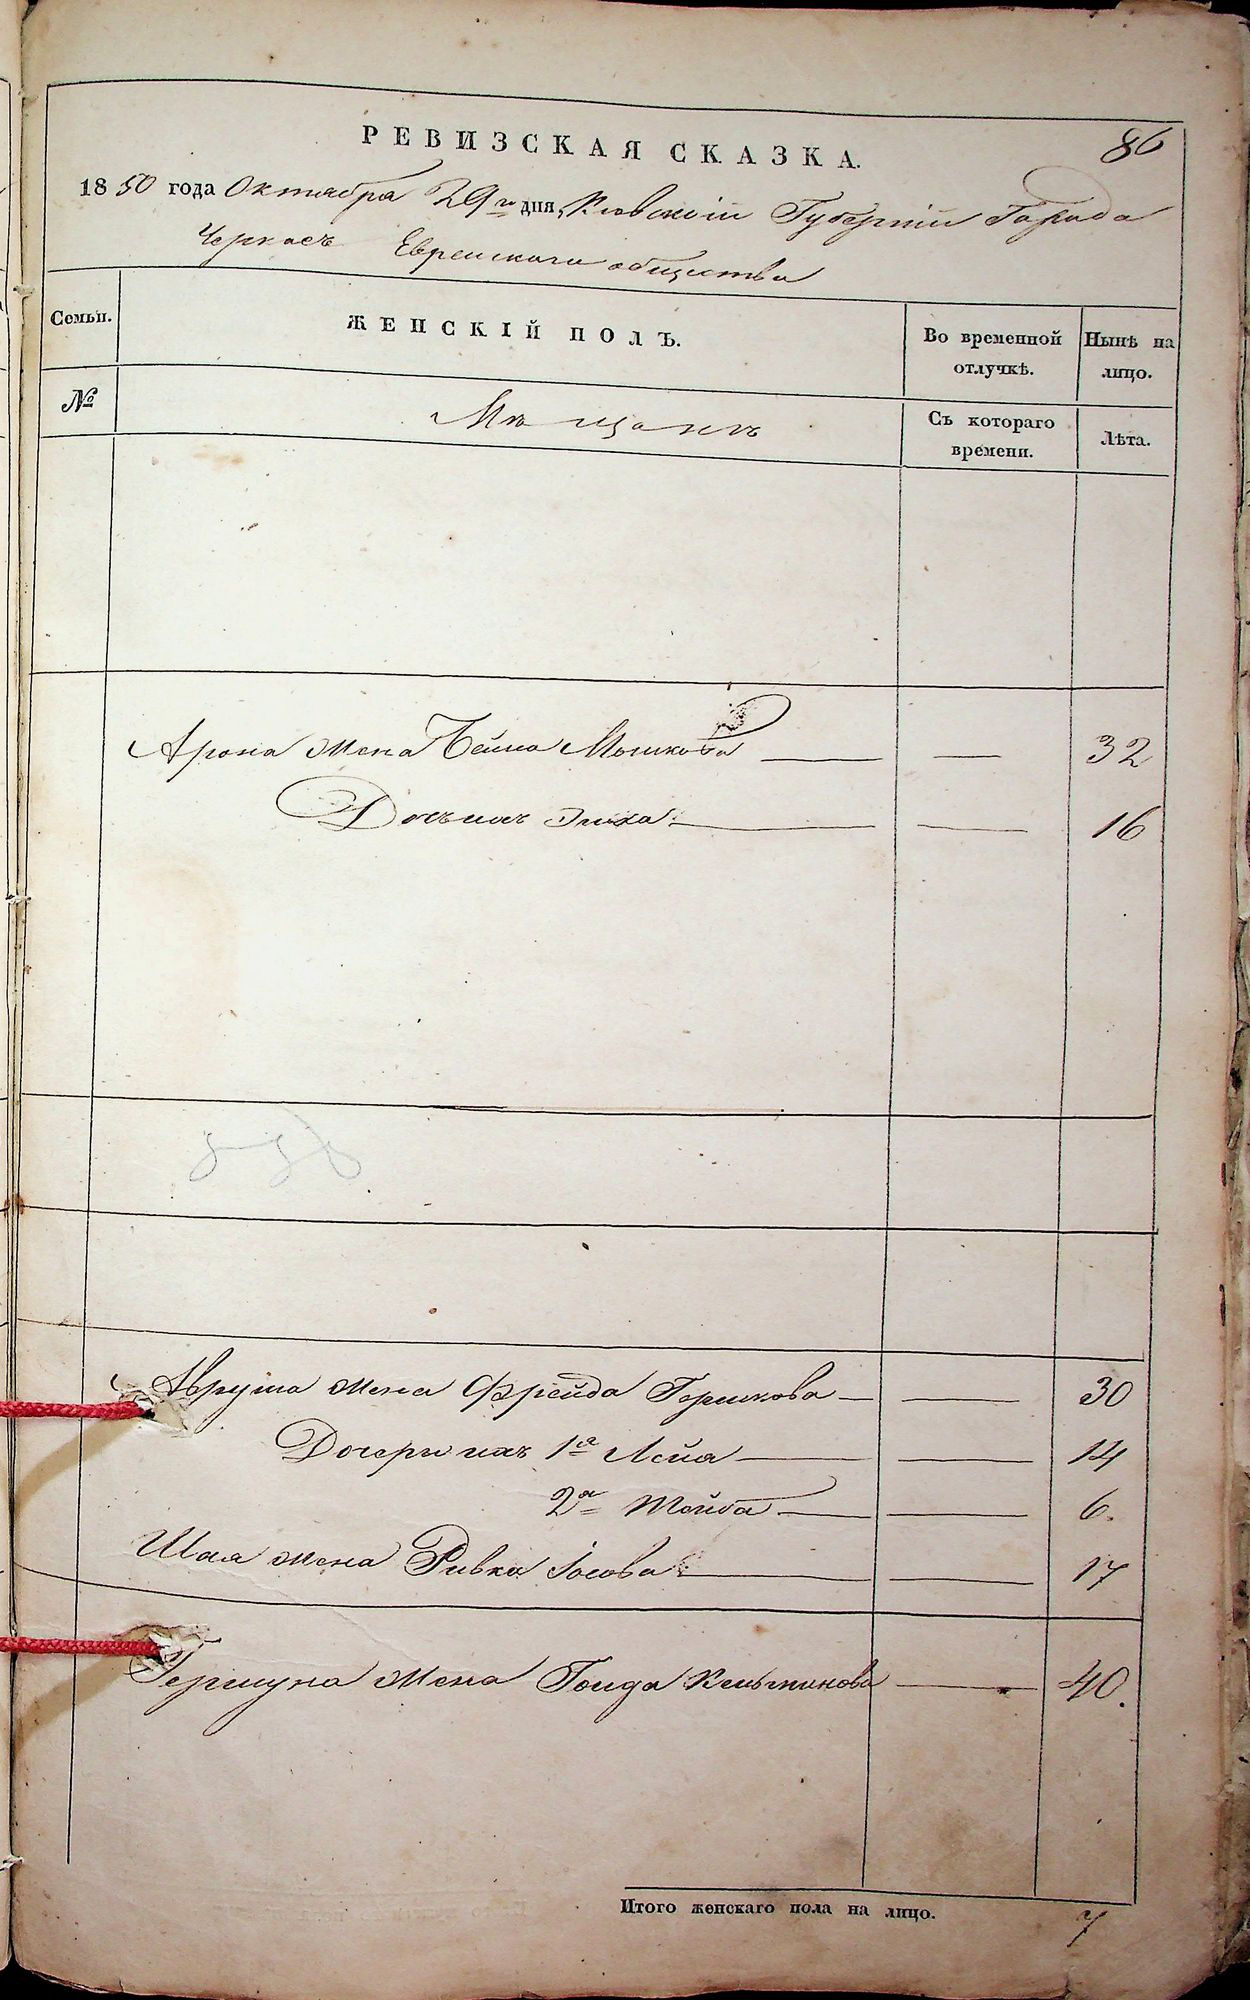 86
РЕВИЗСКАЯ СКАЗКА.
1850 года Октября 29го дня, Киевской Губерніи Города
Черкасъ Еврейскаго общества
Семьи. ЖЕНСКІЙ ПОЛЪ. Во временной отлучкѣ. Нынѣ на лицо.
№ Мѣщанъ Съ котораго времени. Лѣта.
Арона жена Бейла Мошкова — — 32
Дочь ихъ — — 16
Аврума жена Фрейда Гершкова — — 30
Дочери ихъ 1я Лейя — — 14
2я Тойба — — 6.
Шая жена Ривка Іосова — — 17
Гершуна жена — — 40.
Итого женскаго пола на лицо. 7